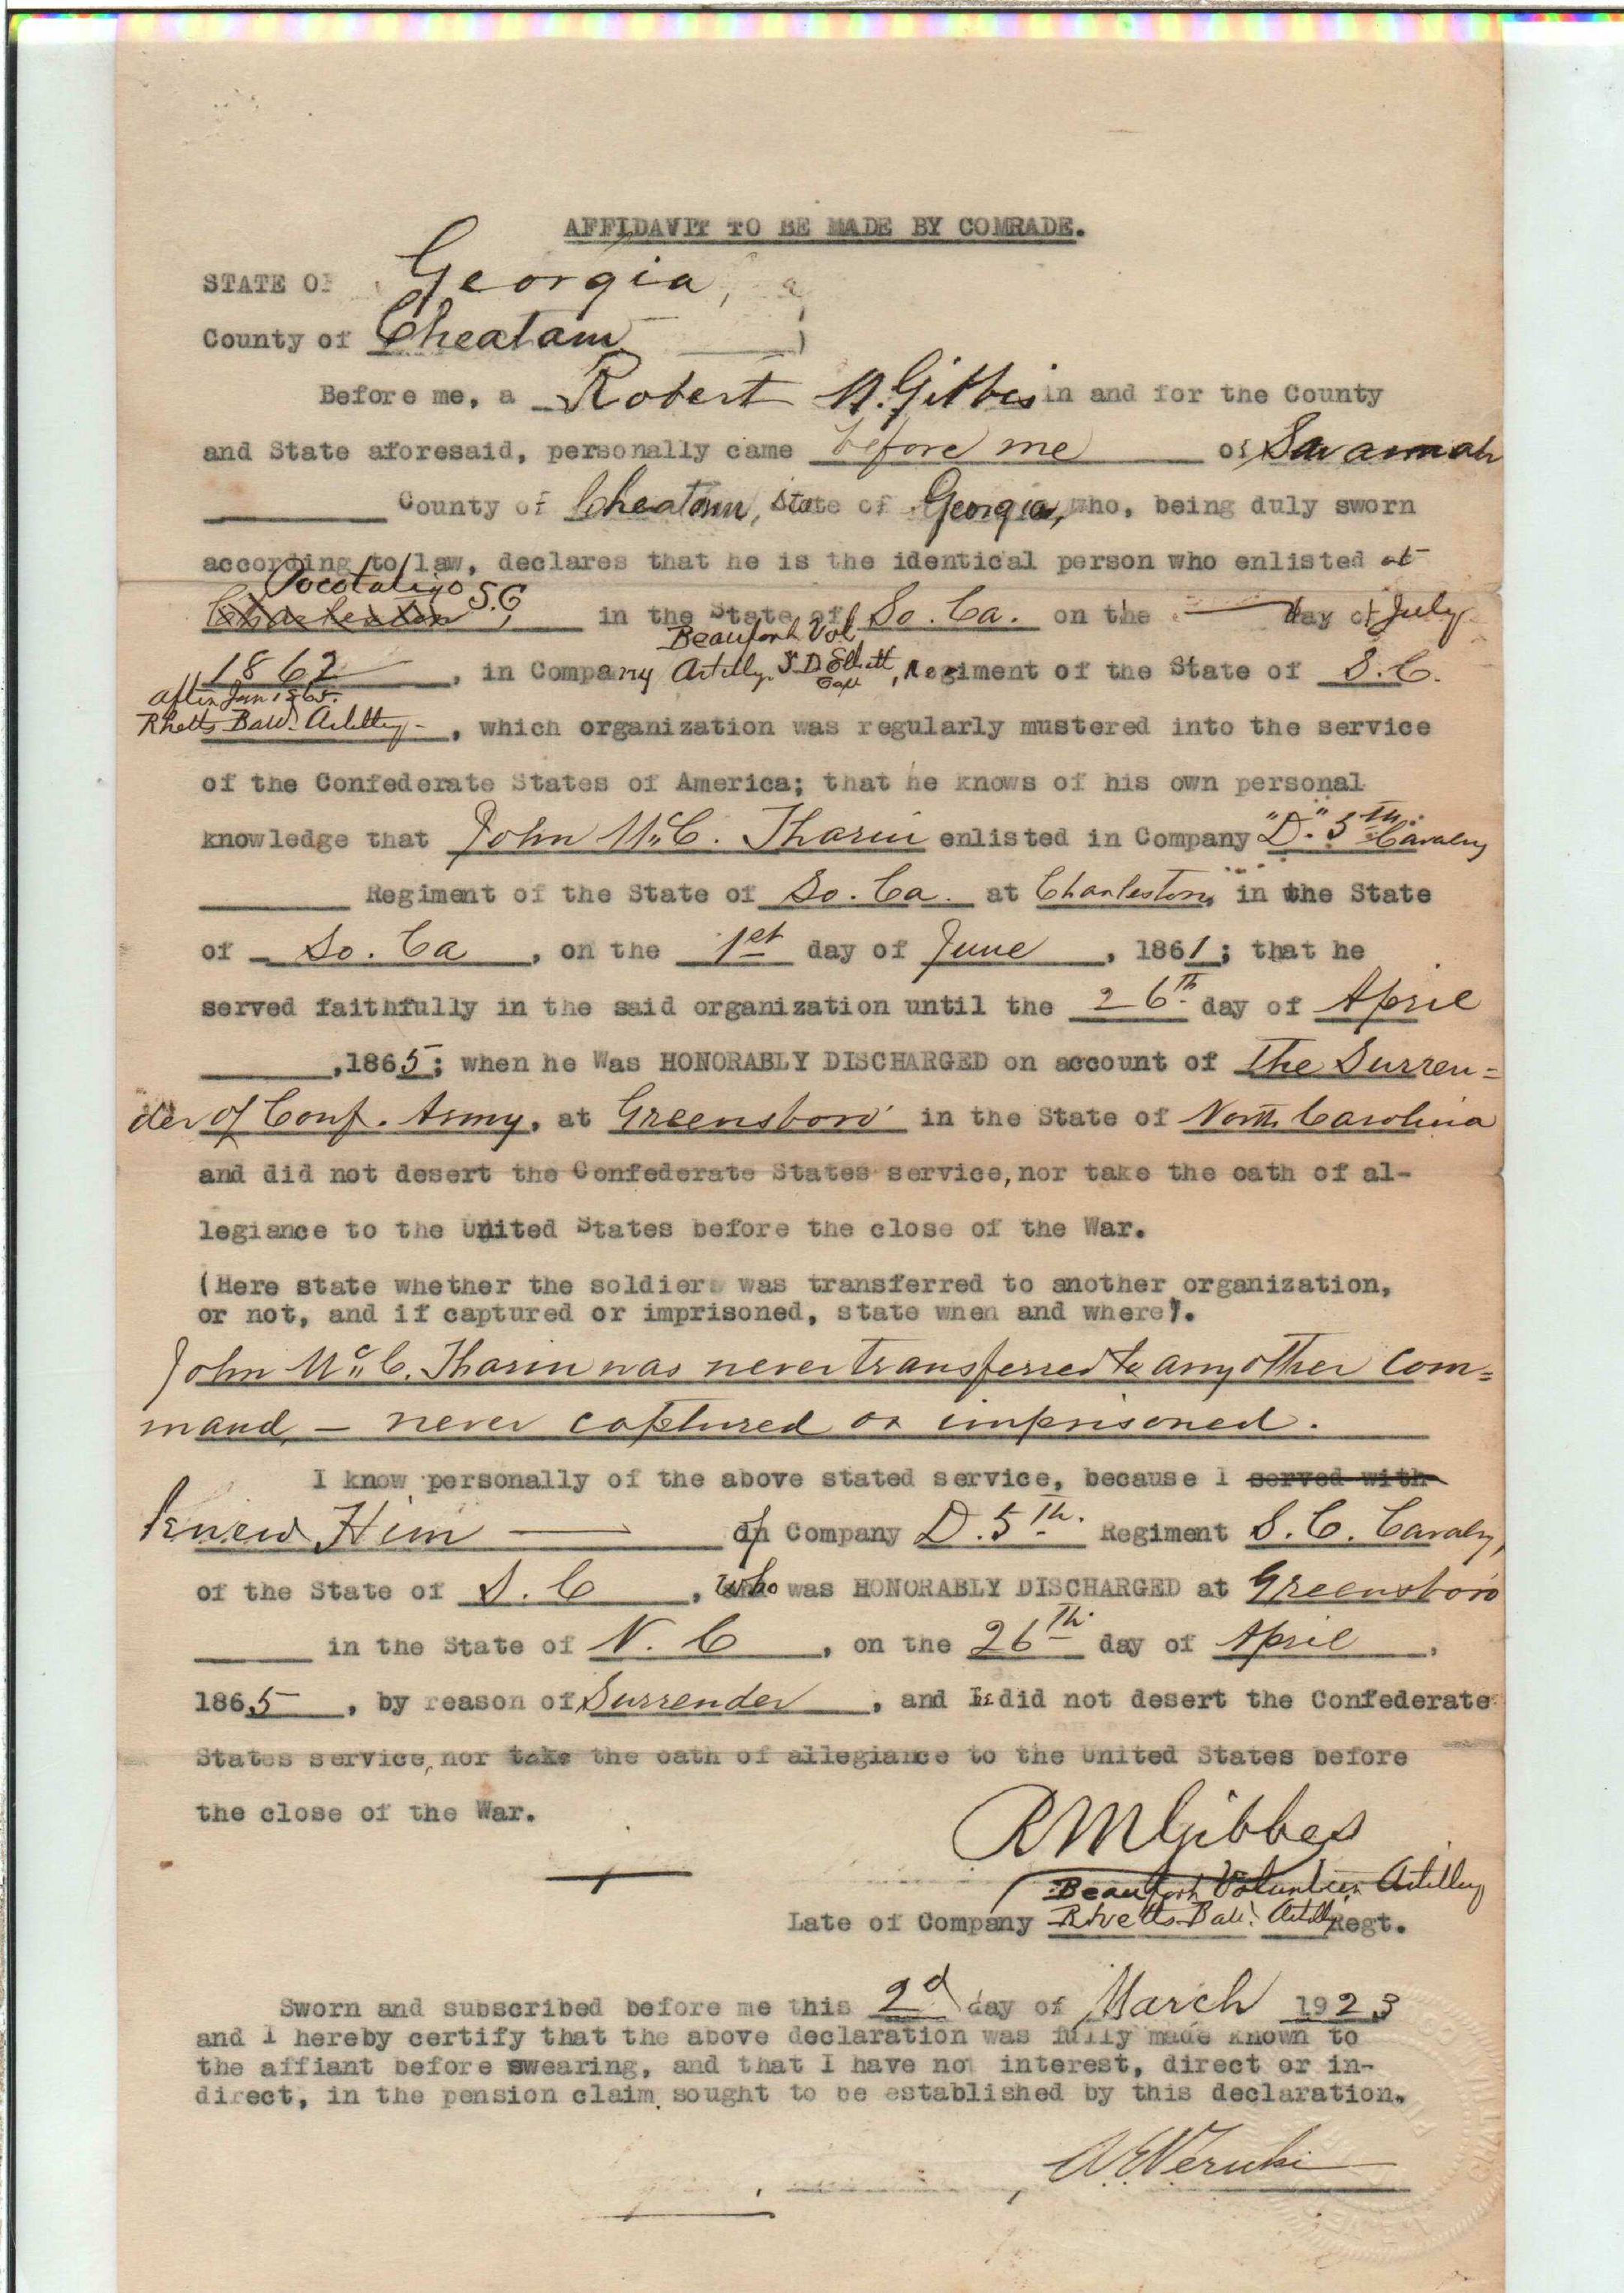 AFFIDAVIT TO BE MADE BY COMRADE.
STATE OF Georgia,
County of Cheatam )
Before me, a Robert M. Gibbes in and for the County
and State aforesaid, personally came before me of Savannah
County of Cheatam, State of Georgia, who, being duly sworn
according to law, declares that he is the identical person who enlisted at
Pocotaligo S.C
Charleston in the State of So. Ca. on the — day of July
Beaufort Vol
1862, in Company Artilly. S. D. Elliott Capt, Regiment of the State of S.C.
after Jan 1865.
Rhetts Batt. Artilley, which organization was regularly mustered into the service
of the Confederate States of America; that he knows of his own personal
knowledge that John McC. Tharin enlisted in Company "D." 5th. Cavalry
Regiment of the State of So. Ca. at Charleston, in the State
of So. Ca, on the 1st day of June, 1861; that he
served faithfully in the said organization until the 26th day of April
,1865; when he Was HONORABLY DISCHARGED on account of The Surren=
der of Conf. Army, at Greensboro in the State of North Carolina
and did not desert the Confederate States service, nor take the oath of al-
legiance to the United States before the close of the War.
(Here state whether the soldier was transferred to another organization,
or not, and if captured or imprisoned, state when and where).
John McC. Tharin was never transferred to any other Com=
mand, — never captured or imprisoned.
I know personally of the above stated service, because I served with
Knew Him — of Company D. 5th. Regiment S. C. Cavalry,
of the State of S. C, who was HONORABLY DISCHARGED at Greensboro
in the State of N. C, on the 26th day of April,
1865, by reason of Surrender, and did not desert the Confederate
States service, nor take the oath of allegiance to the United States before
the close of the War.
RMGibbes
Beaufort Volunteer Artillery
Late of Company Rhetts Batt. Artilly Regt.
Sworn and subscribed before me this 2d day of March 1923
and I hereby certify that the above declaration was fully made known to
the affiant before swearing, and that I have no interest, direct or in-
direct, in the pension claim sought to be established by this declaration.